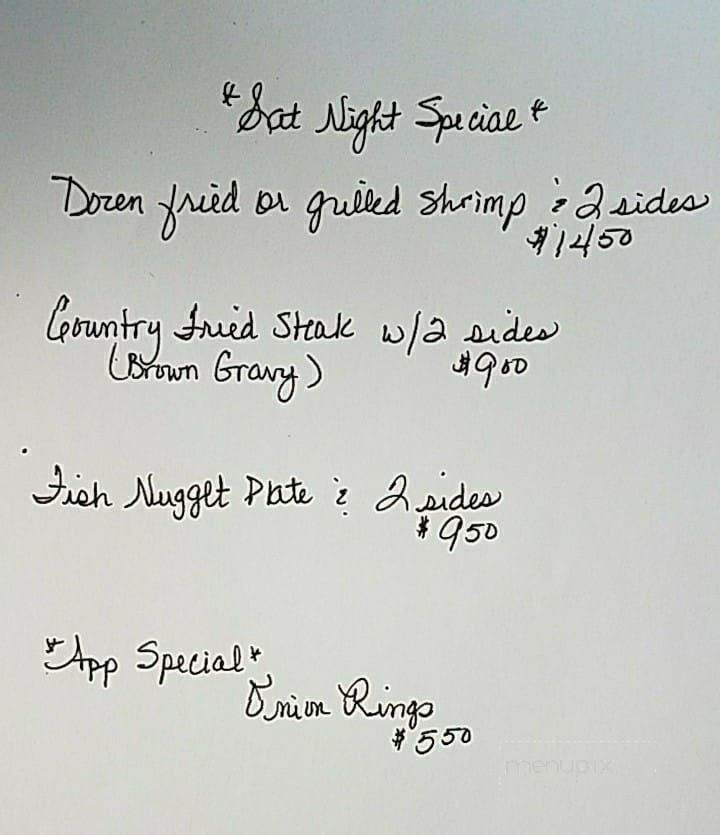 *Sat Night Special*
Dozen fried or grilled shrimp & 2 sides
$14 50
Country Fried Steak w/2 sides
(Brown Gravy) $9 00
Fish Nugget Plate & 2 sides
$9 50
*App Special*
Onion Rings
$5 50
menupix